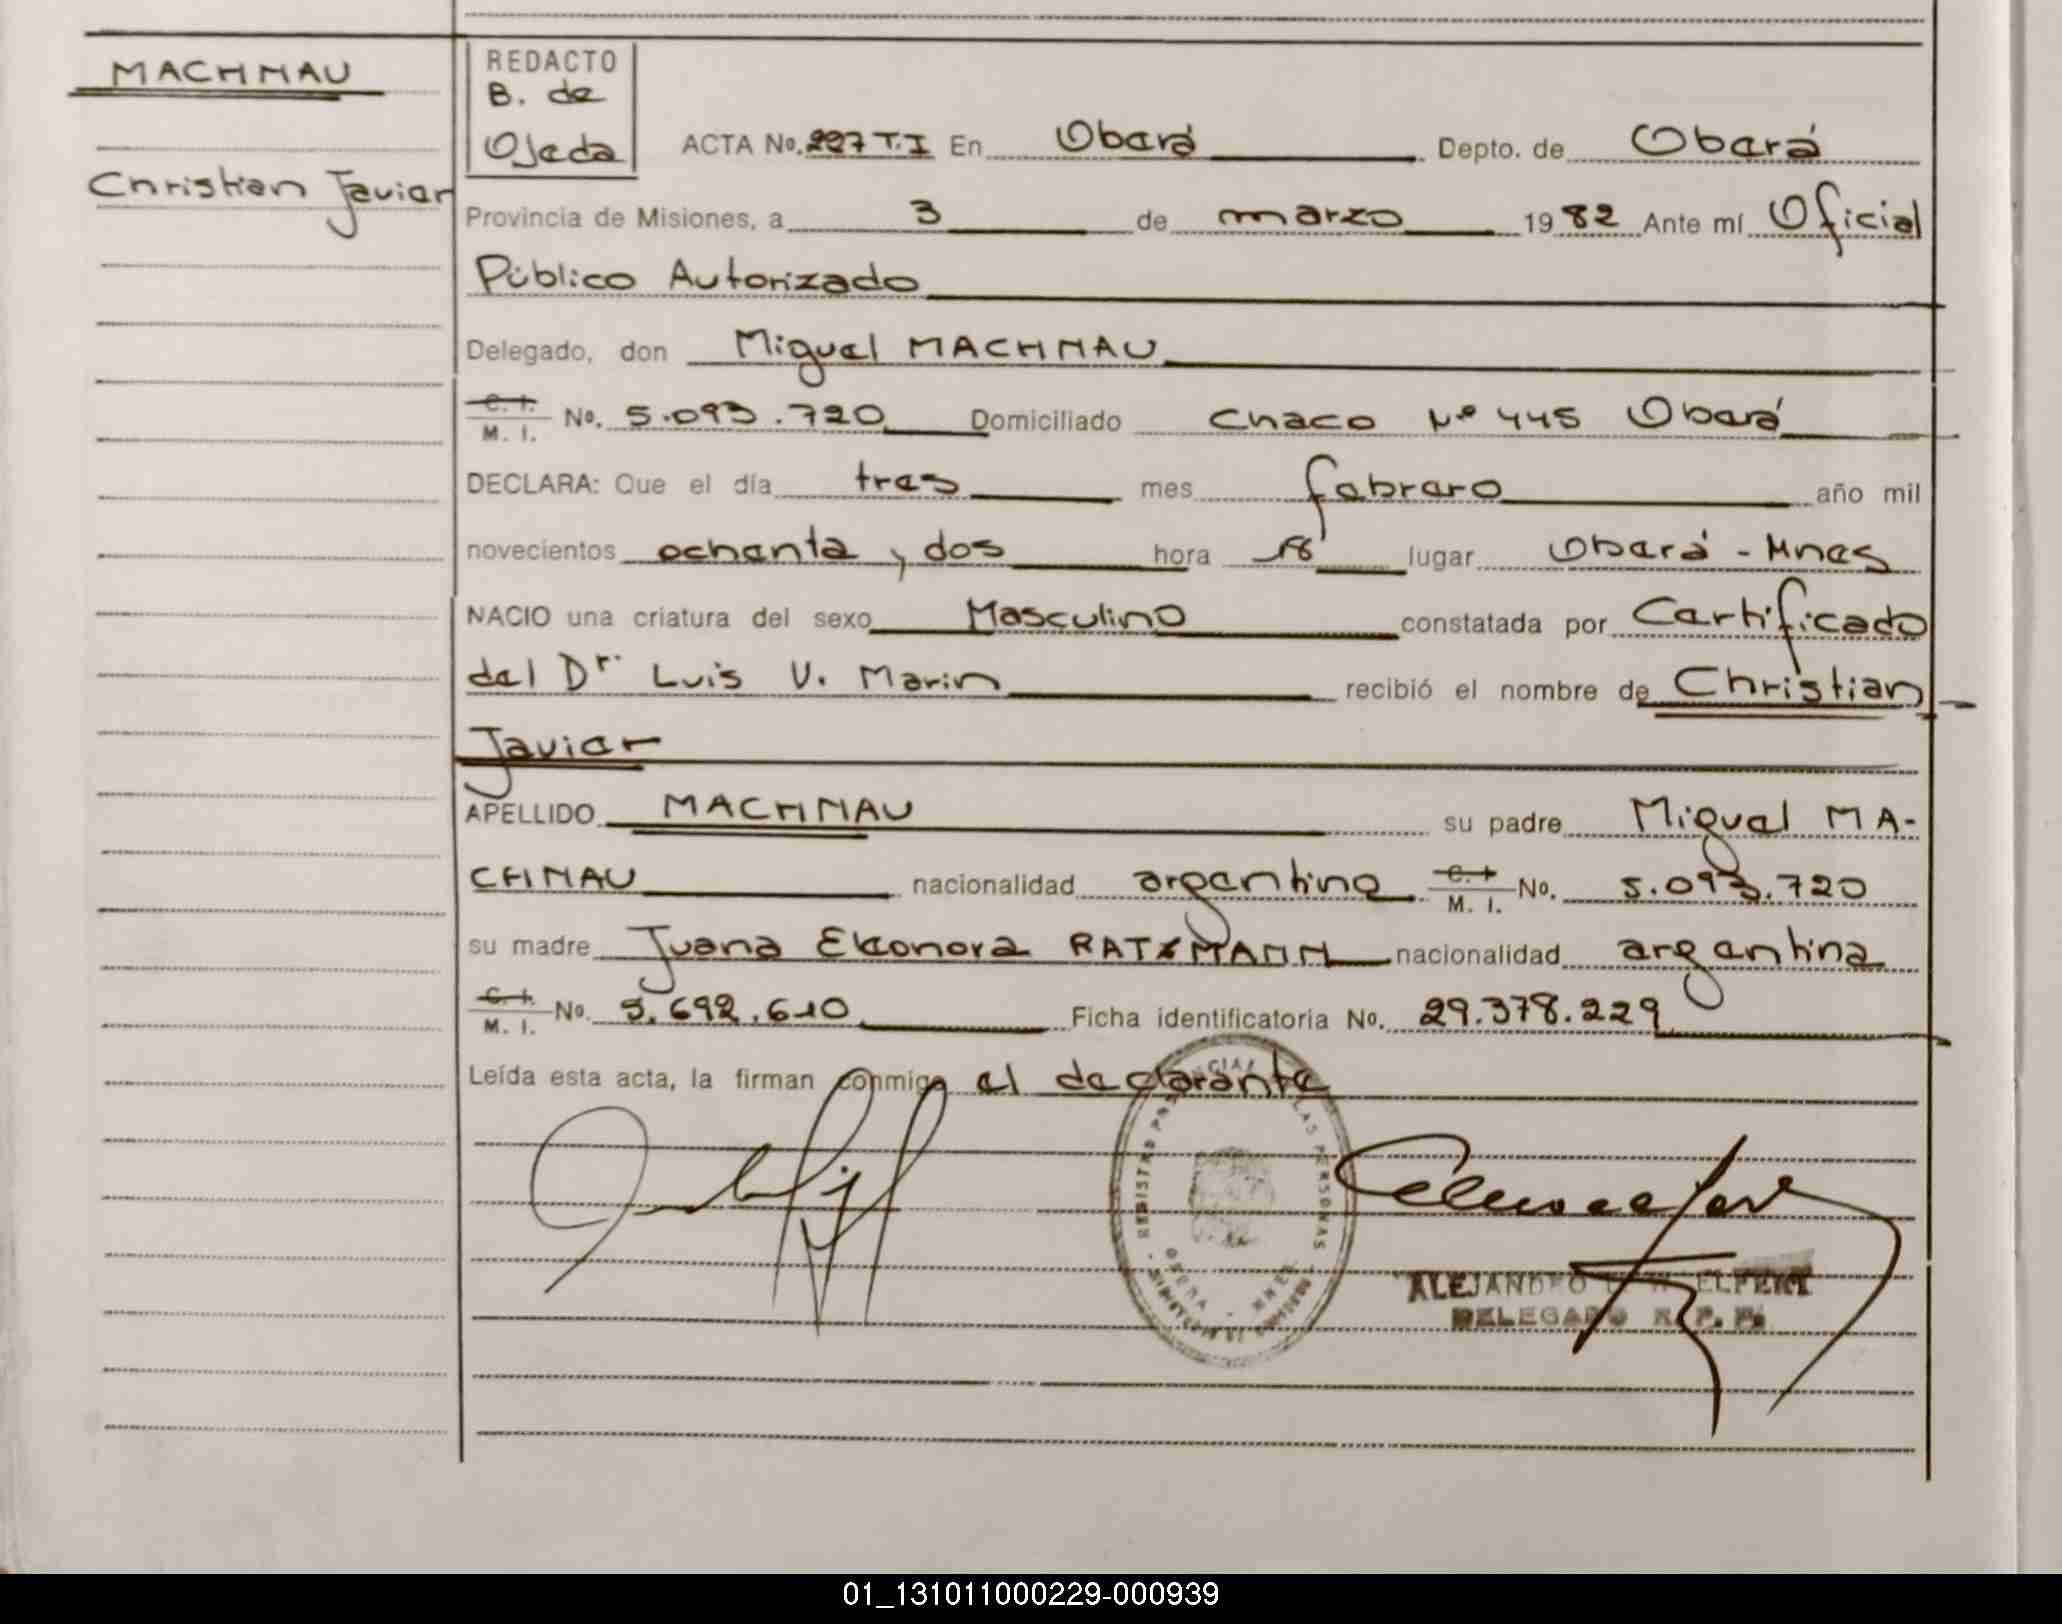 MACHNAU
Christian Javier
REDACTO
B. de
Ojeda
ACTA No. 227 T.I En Oberá Depto. de Oberá
Provincia de Misiones, a 3 de marzo 1982 Ante mí Oficial
Público Autorizado
Delegado, don Miguel MACHNAU
C. I.
M. I. No. 5.093.720 Domiciliado Chaco Nº 445 Oberá
DECLARA: Que el día tres mes febrero año mil
novecientos ochenta y dos hora 18 lugar Oberá - Mnes
NACIO una criatura del sexo Masculino constatada por Certificado
del Dr. Luis V. Marin recibió el nombre de Christian
Javier
APELLIDO MACHNAU su padre Miguel MA-
CHNAU nacionalidad argentina C. I.
M. I. No. 5.093.720
su madre Juana Eleonora RATZMANN nacionalidad argentina
C. I.
M. I. No. 5.692.610 Ficha identificatoria No. 29.378.229
Leída esta acta, la firman conmigo el declarante
REGISTRO LAS PERSONAS
OBERA - MNES
ALEJANDRO
DELEGADO R. P. P.
01_131011000229-000939